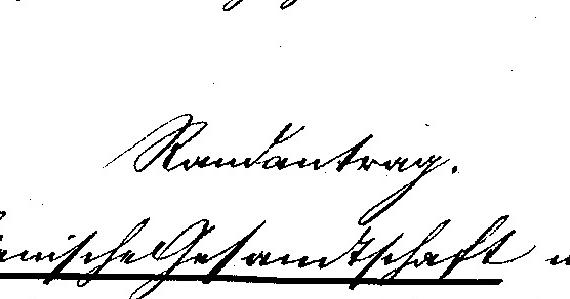 Randantrag.
enische Gesandtschaft